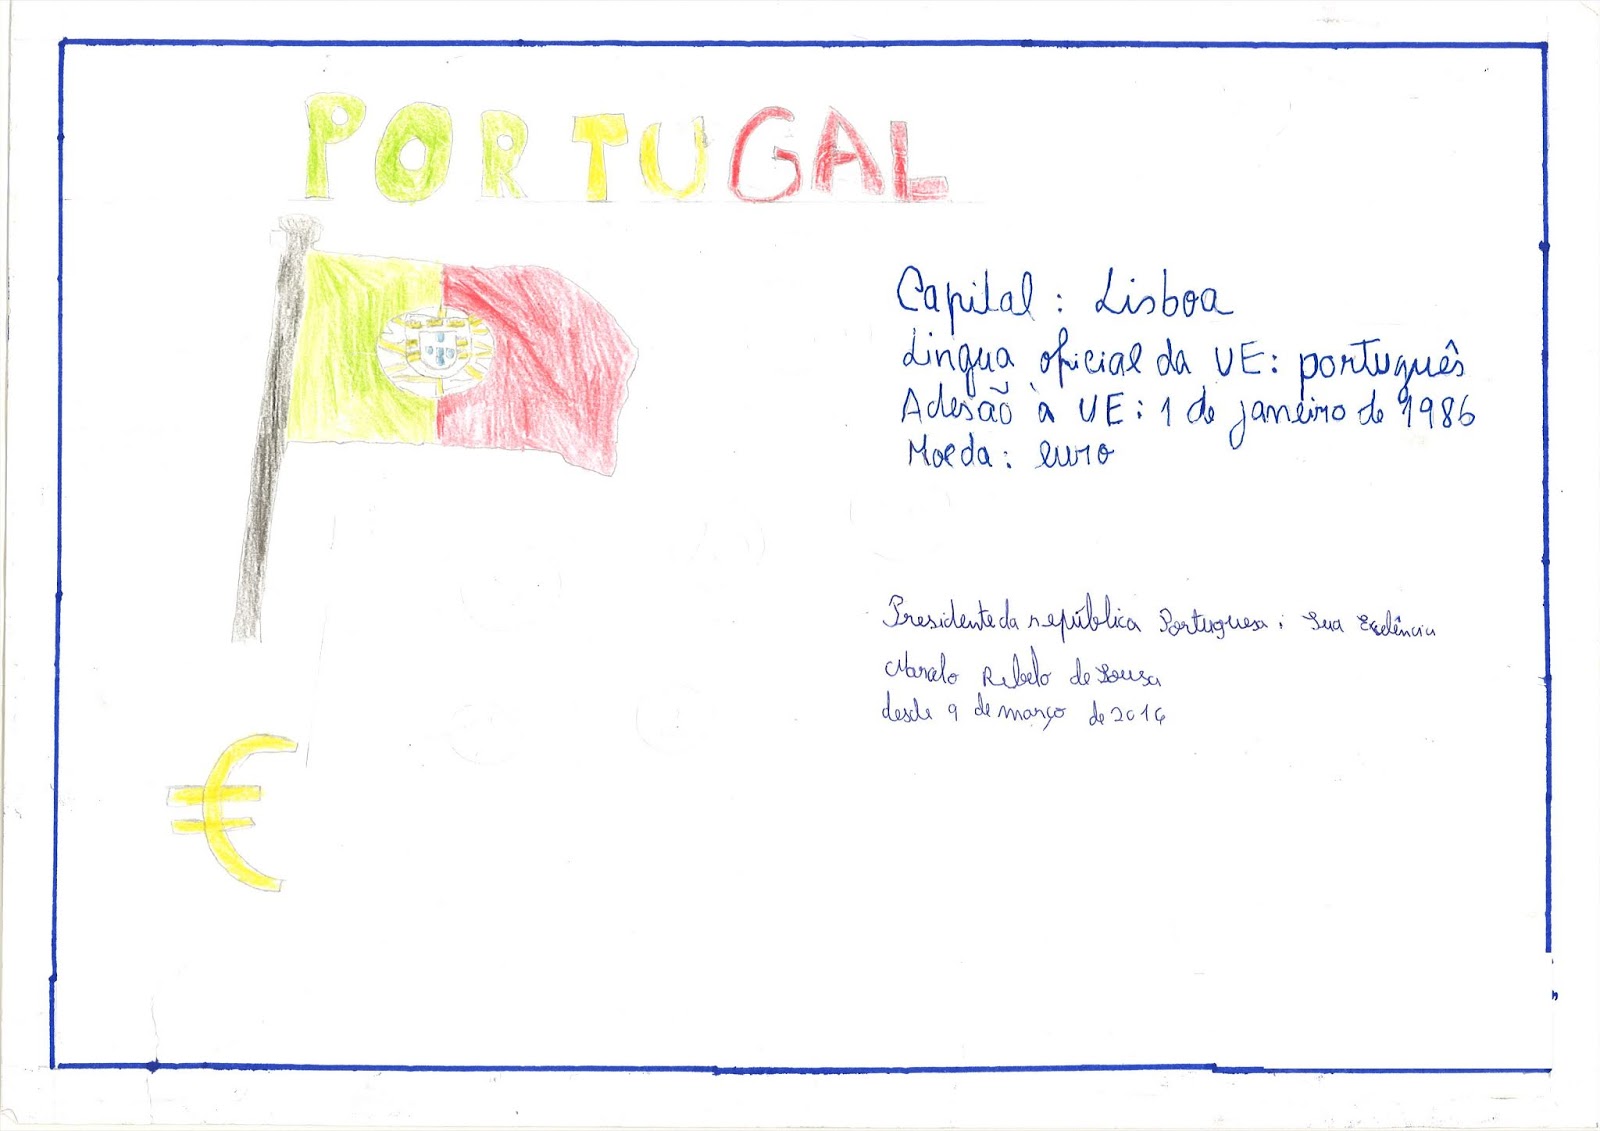 PORTUGAL
Capital: Lisboa
Língua oficial da UE: português
Adesão à UE: 1 de janeiro de 1986
Moeda: euro
Presidente da república Portuguesa: Sua Exelência
Marcelo Rebelo de Sousa
desde 9 de março de 2016
€